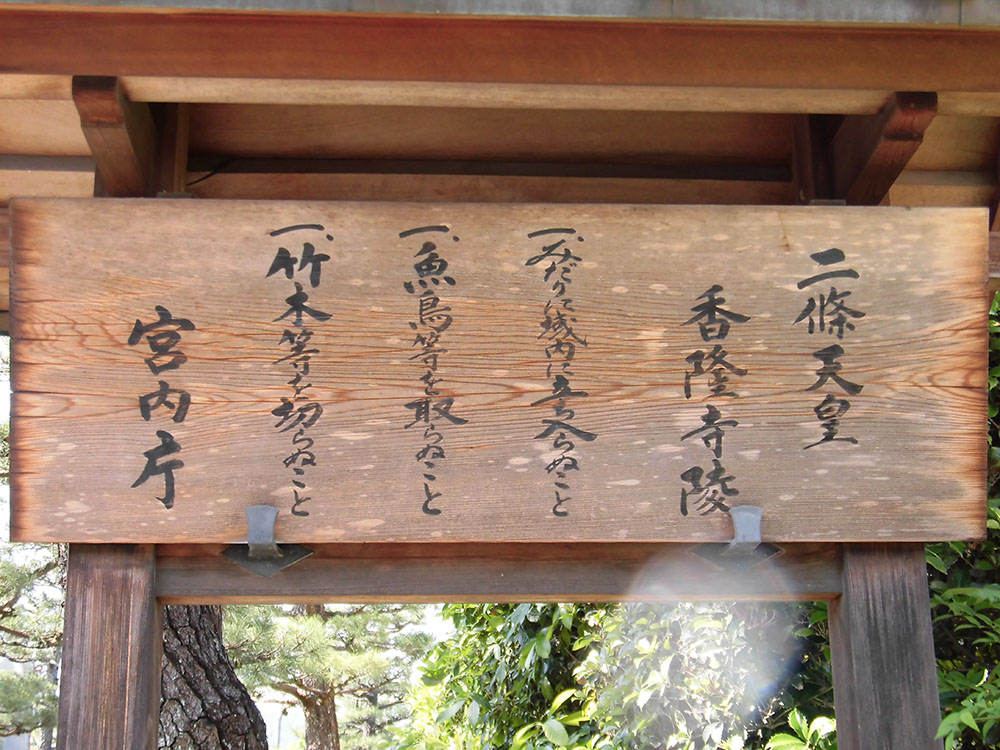 二條天皇
香隆寺陵
一、みだりに域内に立ち入らぬこと
一、魚鳥等を取らぬこと
一、竹木等を切らぬこと
宮内庁